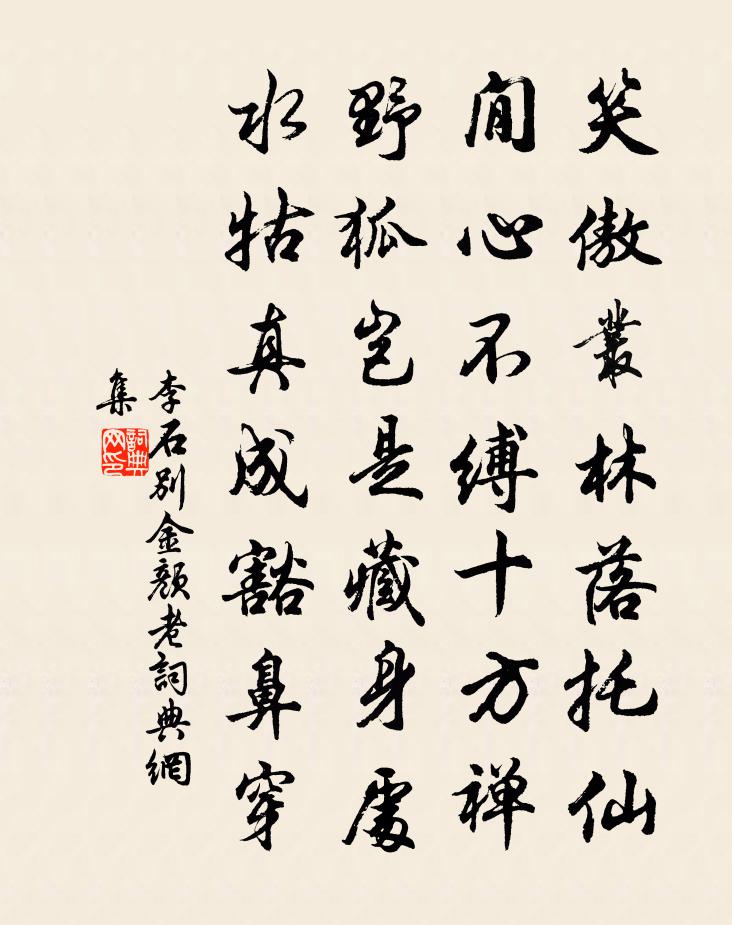 笑傲叢林落托仙
閒心不縛十方禅
野狐豈是藏身處
水牯真成豁鼻穿
李石別金顏老詞典網
集
詞典
网印